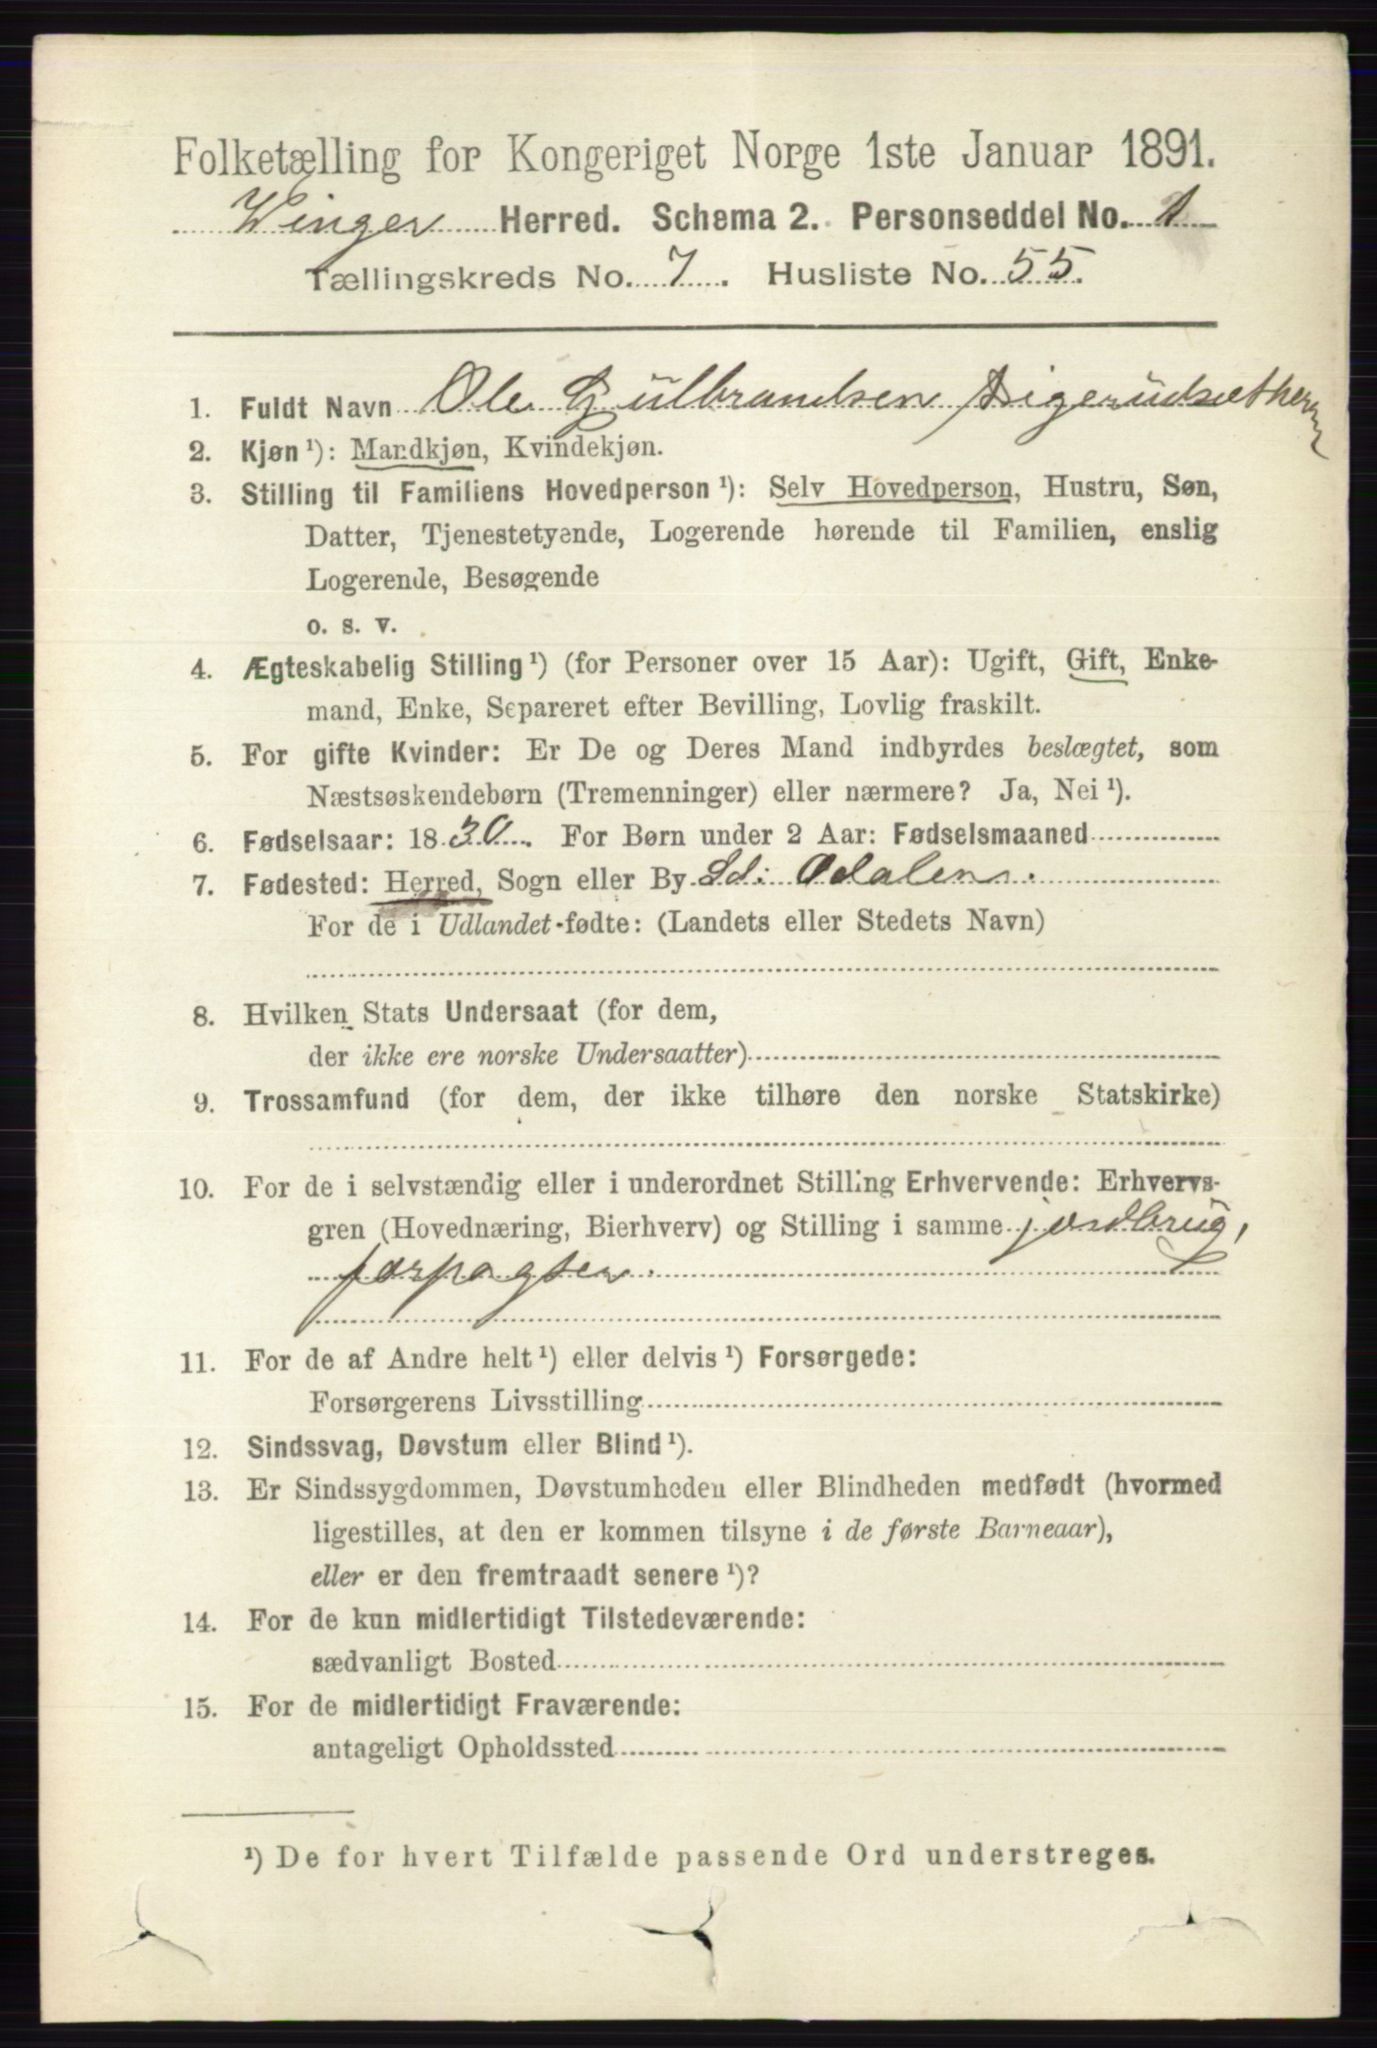 Folketælling for Kongeriget Norge 1ste Januar 1891.
Winger Herred. Schema 2. Personseddel No. 1
Tællingskreds No. 7. Husliste No. 55.
1. Fuldt Navn Ole Gulbrandsen Digerudsætheren
2. Kjøn ¹): Mandkjøn, Kvindekjøn.
3. Stilling til Familiens Hovedperson ¹): Selv Hovedperson, Hustru, Søn,
Datter, Tjenestetyende, Logerende hørende til Familien, enslig
Logerende, Besøgende
o. s. v.
4. Ægteskabelig Stilling ¹) (for Personer over 15 Aar): Ugift, Gift, Enke-
mand, Enke, Separeret efter Bevilling, Lovlig fraskilt.
5. For gifte Kvinder: Er De og Deres Mand indbyrdes beslægtet, som
Næstsøskendebørn (Tremenninger) eller nærmere? Ja, Nei ¹).
6. Fødselsaar: 1830. For Børn under 2 Aar: Fødselsmaaned
7. Fødested: Herred, Sogn eller By Sd: Odalen.
For de i Udlandet-fødte: (Landets eller Stedets Navn)
8. Hvilken Stats Undersaat (for dem,
der ikke ere norske Undersaatter)
9. Trossamfund (for dem, der ikke tilhøre den norske Statskirke)
10. For de i selvstændig eller i underordnet Stilling Erhvervende: Erhvervs-
gren (Hovednæring, Bierhverv) og Stilling i samme jordbrug,
forpagter.
11. For de af Andre helt ¹) eller delvis ¹) Forsørgede:
Forsørgerens Livsstilling
12. Sindssvag, Døvstum eller Blind ¹).
13. Er Sindssygdommen, Døvstumheden eller Blindheden medfødt (hvormed
ligestilles, at den er kommen tilsyne i de første Barneaar),
eller er den fremtraadt senere ¹)?
14. For de kun midlertidigt Tilstedeværende:
sædvanligt Bosted
15. For de midlertidigt Fraværende:
antageligt Opholdssted
¹) De for hvert Tilfælde passende Ord understreges.